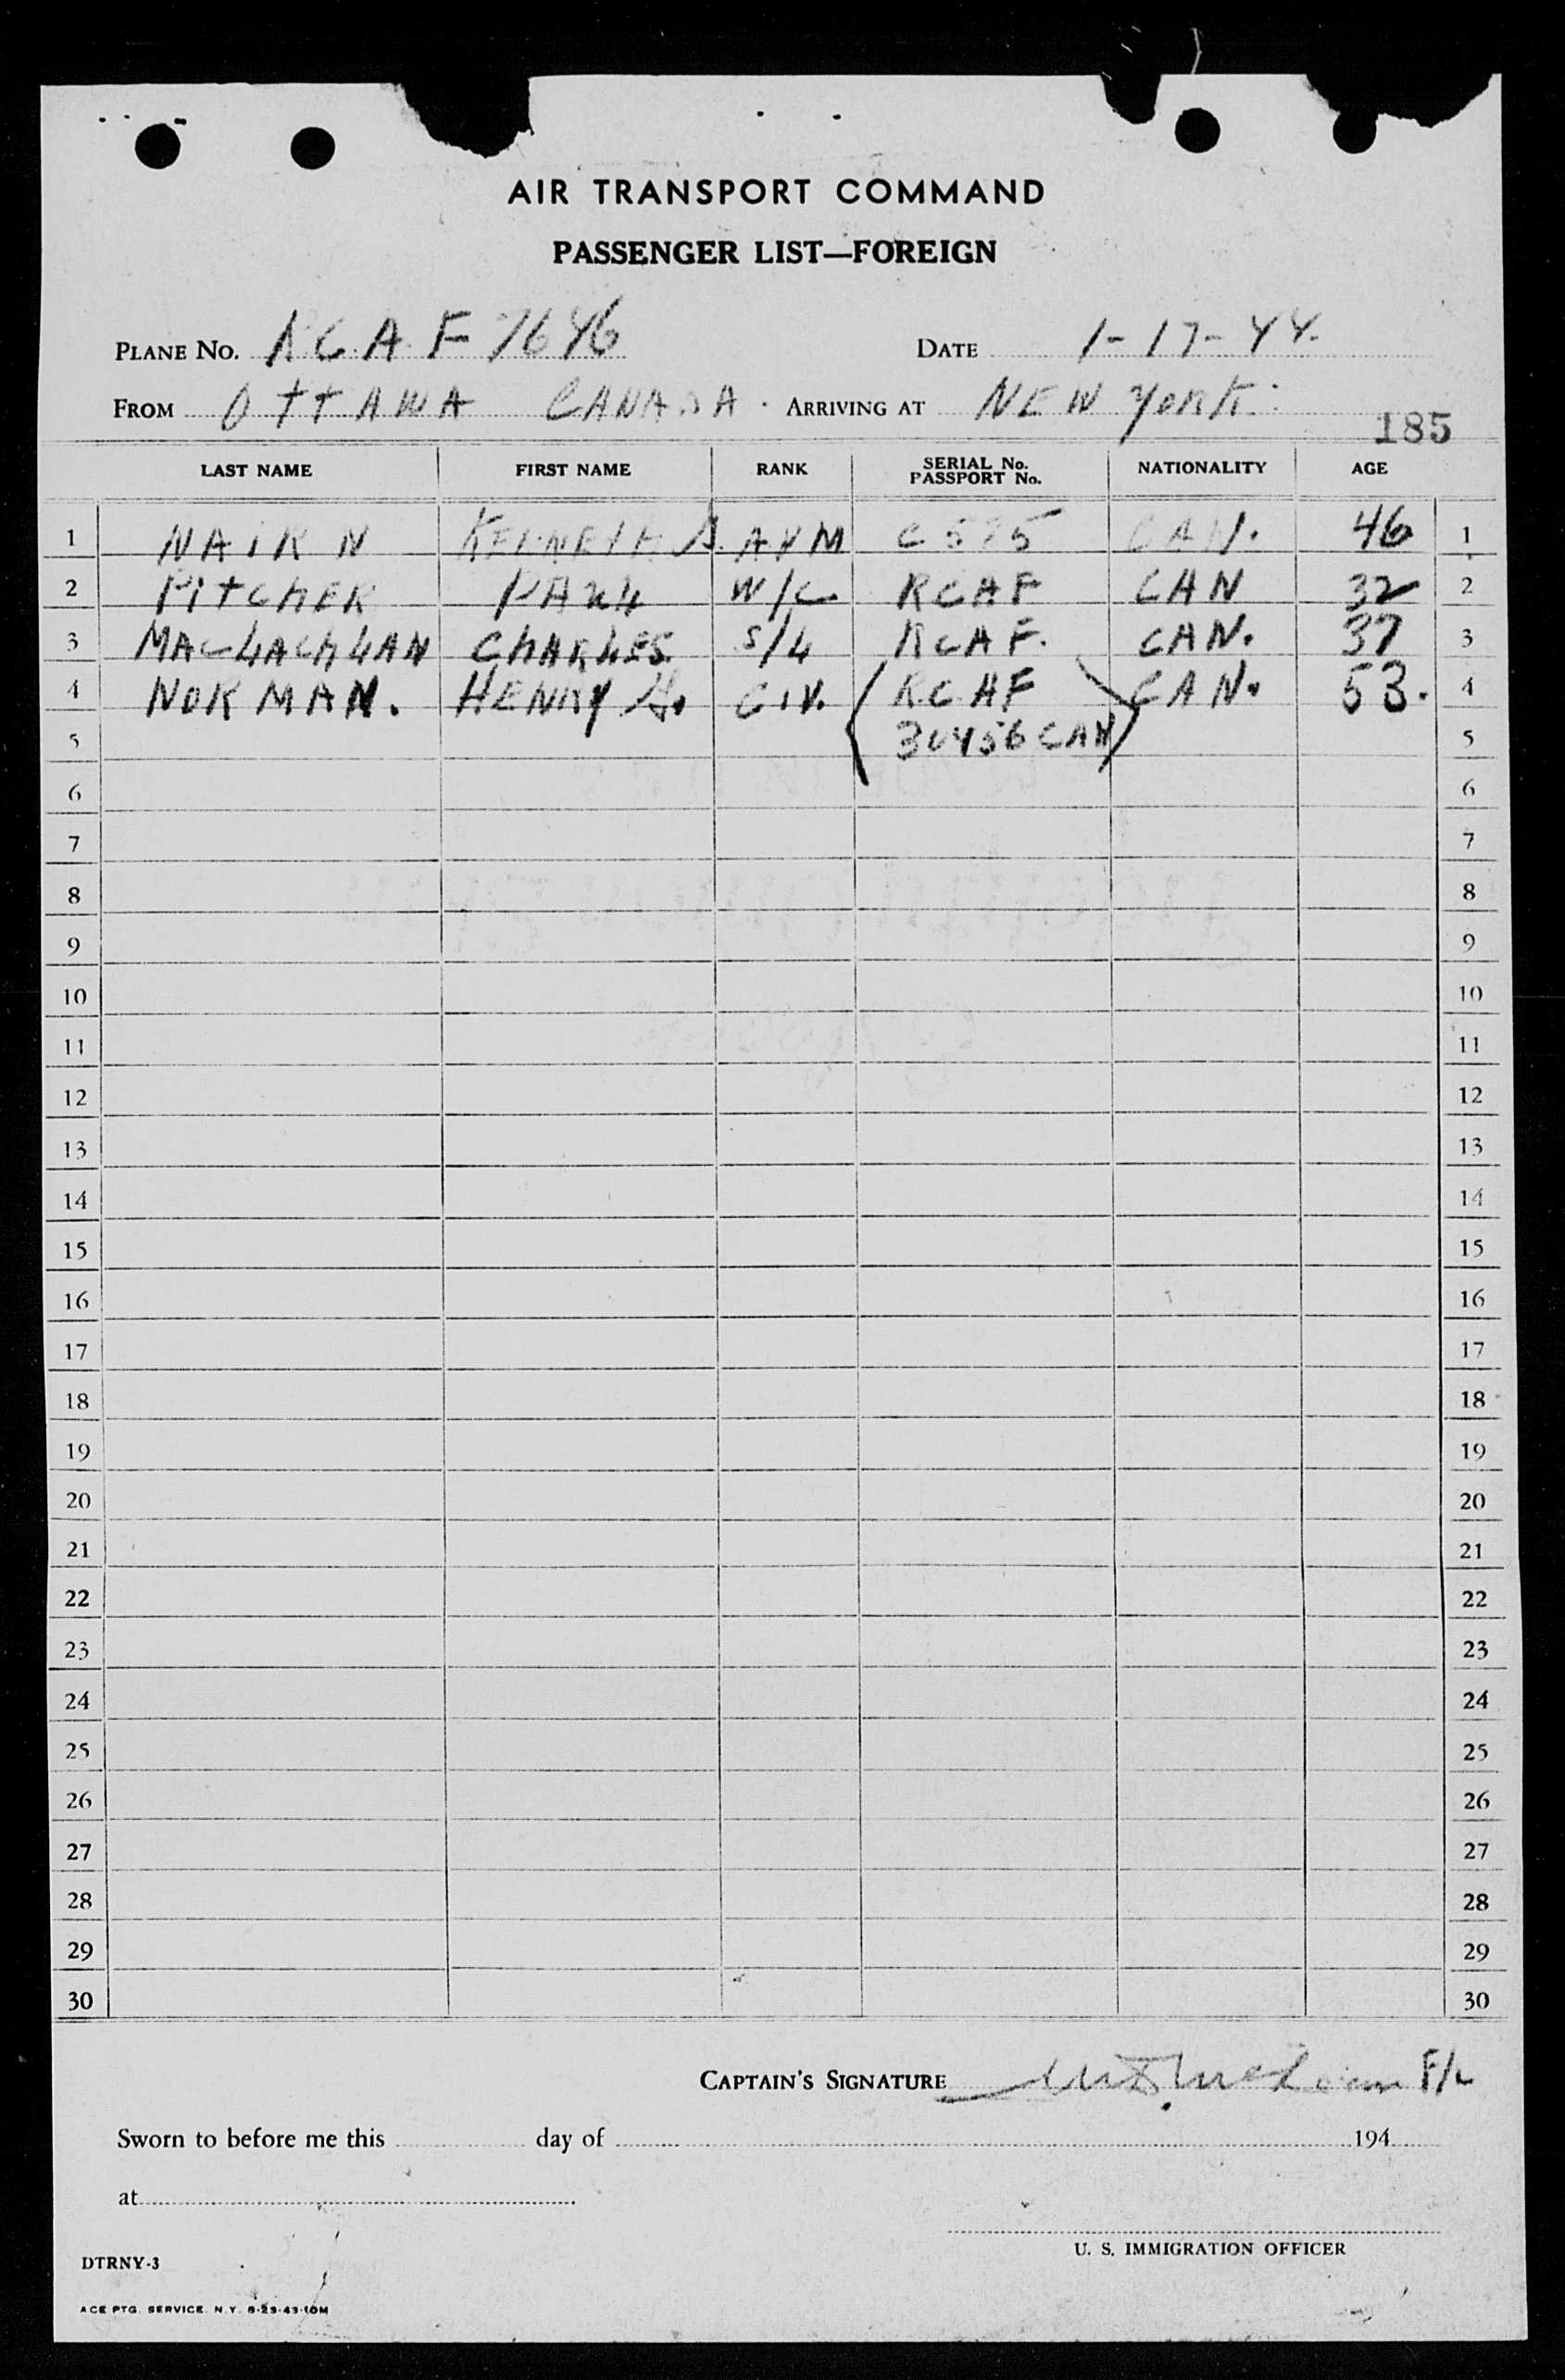 AIR TRANSPORT COMMAND
PASSENGER LIST—FOREIGN
PLANE No. RCAF 7646 DATE 1-17-44.
FROM OTTAWA CANADA. ARRIVING AT NEW YORK.
185
LAST NAME FIRST NAME RANK SERIAL No. PASSPORT No. NATIONALITY AGE
1 NAIRN KENNETH AVM C CAN. 46 1
2 PITCHER PAUL W/C RCAF CAN 32 2
3 MACLACHLAN CHARLES S/L RCAF. CAN. 37 3
4 NORMAN. HENRY G. CIV. (RCAF CAN. 53. 4
5 30456 CAN) 5
6 6
7 7
8 8
9 9
10 10
11 11
12 12
13 13
14 14
15 15
16 16
17 17
18 18
19 19
20 20
21 21
22 22
23 23
24 24
25 25
26 26
27 27
28 28
29 29
30 30
CAPTAIN'S SIGNATURE F/L
Sworn to before me this day of 194
at
U. S. IMMIGRATION OFFICER
DTRNY-3
ACE PTG. SERVICE. N.Y. 8-23-43-10M